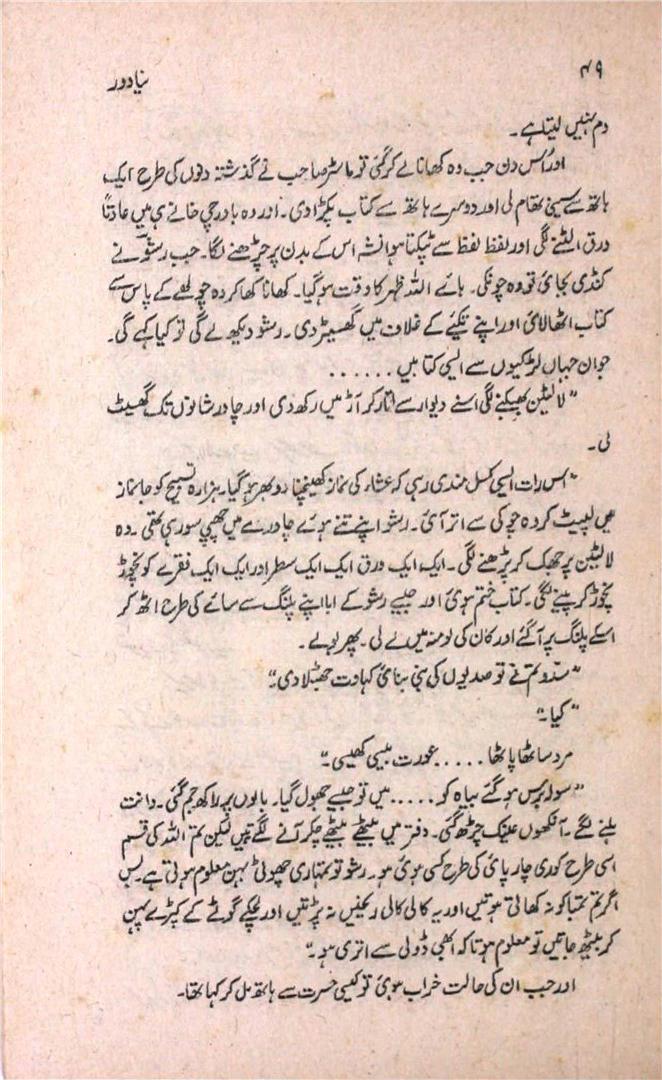 ۴۹
نیا دور
دم نہیں لیتا ہے۔
اور اُس دن جب وہ کھانا لے کر گئی تو ماسٹر صاحب نے گذشتہ دنوں کی طرح ایک
ہاتھ سے سینی تھام لی اور دوسرے ہاتھ سے کتاب پکڑا دی۔ اور وہ باورچی خانے ہی میں عادتاً
ورق الٹنے لگی اور لفظ لفظ سے ٹپکتا ہوا نشہ اس کے بدن پر چڑھنے لگا۔ جب رشو نے
کنڈی بجائی تو وہ چونکی۔ ہائے اللہ ظہر کا وقت ہو گیا۔ کھانا کھا کر وہ چولھے کے پاس سے
کتاب اٹھا لائی اور اپنے تکیئے کے غلاف میں گھسیڑ دی۔ رشو دیکھ لے گی تو کیا کہے گی۔
جوان جہاں لڑکیوں سے ایسی کتابیں . . . . . .
"لالٹین بھبکنے لگی اسنے دیوار سے اتار کر آڑ میں رکھ دی اور چادر شانوں تک گھسیٹ
لی۔
"اس رات ایسی کسل مندی رہی کہ عشاء کی نماز کھینچنا دوبھر ہو گیا۔ ہزارہ تسبیح کو جانماز
میں لپیٹ کر وہ چوکی سے اتر آئی۔ رشو اپنے تنے ہوئے چادرے میں چھپی سو رہی تھی۔ وہ
لالٹین پر جھک کر پڑھنے لگی۔ ایک ایک ورق ایک ایک سطر اور ایک ایک فقرے کو نچوڑ
نچوڑ کر پینے لگی۔ کتاب ختم ہوئی اور جیسے رشو کے ابا اپنے پلنگ سے سائے کی طرح اٹھ کر
اسکے پلنگ پر آ گئے اور کان کی لو منہ میں لے لی۔ پھر بولے۔
"سدو تم نے تو صدیوں کی بنی بنائی کہاوت جھٹلا دی۔"
"کیا۔"
مرد ساٹھا پاٹھا . . . . . عورت بیسی کھیسی۔"
"سولہ برس ہو گئے بیاہ کو . . . . . میں تو جیسے جھول گیا۔ بالوں پر راکھ جم گئی۔ دانت
ہلنے لگے۔ آنکھوں عینک چڑھ گئی۔ دفتر میں بیٹھے بیٹھے چکر آنے لگتے ہیں لیکن تم اللہ کی قسم
اسی طرح کوری چارپائی کی طرح کسی ہوئی ہو۔ رشو تو تمہاری چھوٹی بہن معلوم ہوتی ہے۔ بس
اگر تم تمباکو نہ کھاتی ہوتیں اور یہ کالی کالی ریخیں نہ پڑتیں اور لچکے گوٹے کے کپڑے پہن
کر بیٹھ جاتیں تو معلوم ہوتا کہ ابھی ڈولی سے اتری ہو۔"
اور جب ان کی حالت خراب ہوئی تو کیسی حسرت سے ہاتھ مل کر کہا تھا۔